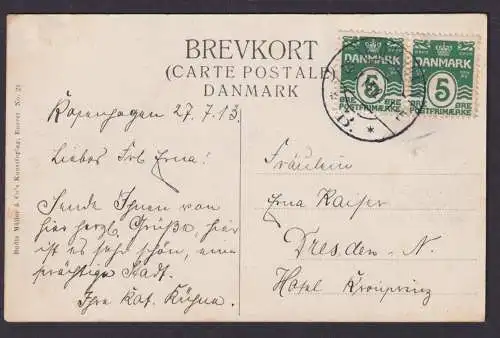 BREVKORT
(CARTE POSTALE)
DANMARK
DANMARK
5
ØRE
POSTFRIMÆRKE
DANMARK
5
ØRE
POSTFRIMÆRKE
B.
Kopenhagen 27.7.13.
Liebes Frl Erna!
Sende Ihnen von
hier herzl. Grüße, hier
ist es sehr schön, eine
prächtige Stadt.
Ihre Kat. Kühne.
Fräulein
Erna Kaiser
Dresden-N.
Hotel Kronprinz